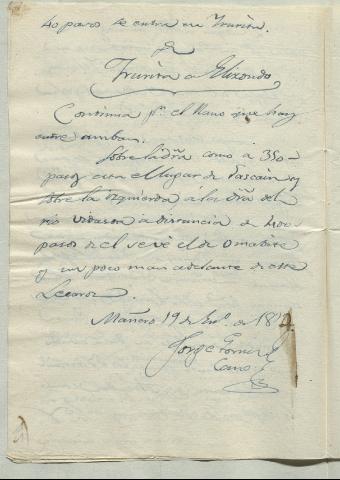 40 pasos se entra en Irurita.
de
Irurita a Elizondo
Continua pr. el llano que hay
entre ambas.
Sobre la dra. como a 350
pasos esta el lugar de Gascain y
sobre la izquierda á la dra. del
rio Vidasoa a distancia de 400
pasos de el se ve el de
y un poco mas adelante de este
Lecaroz.
Mañeru 19 de de 18
Jorge Gomez
Cano